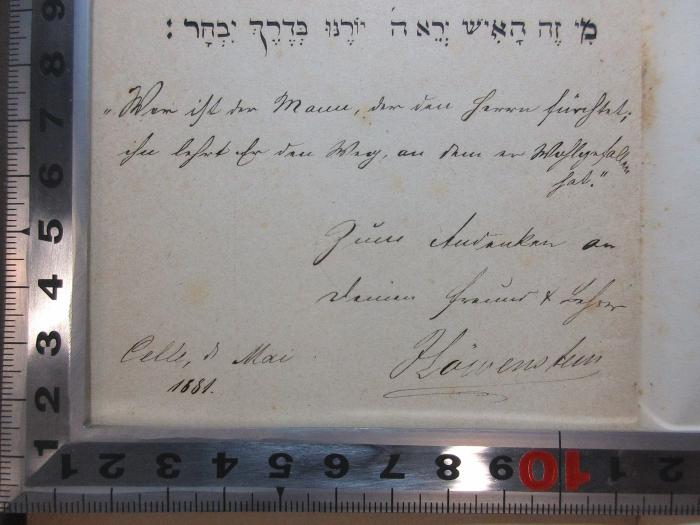 מִי זֶה הָאִישׁ יְרֵא ה' יוֹרֶנּוּ בְּדֶרֶךְ יִבְחָר:
„Wer ist der Mann, der den Herrn fürchtet;
ihn lehrt Er den Weg, an dem er Wohlgefallen
hat."
Zum Andenken an
Deinen Freund & Lehrer
Celle, d. Mai
Löwenstein
1881.
9
8
7
6
5
4
3
2
1
1 2 3 4 5 6 7 8 9 10 1 2